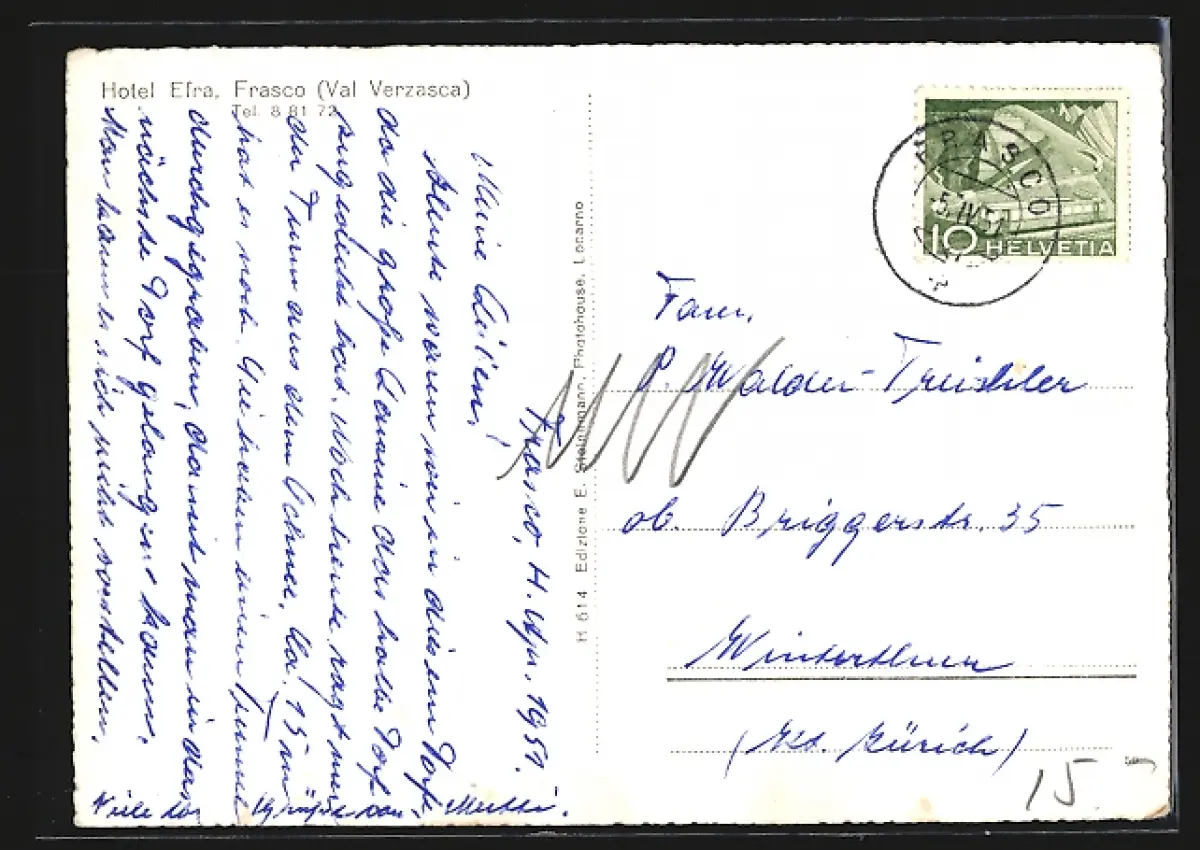 Hotel Efra, Frasco (Val Verzasca)
Tel. 8 81 72
Frasco, 4. Apr. 1951.
Meine Lieben!
Heute waren wir in diesem Dorfe
da die große Lawine das halbe Dorf
zugedeckt hat. Noch heute ragt nur
der Turm aus dem Schnee, da! 15 m
hat es noch. Sie haben einen Tunnel
durchgegraben, damit man in das
nächste Dorf gelangen kann.
Man kann es sich nicht vorstellen.
Viele Grüße von Mutti.
H 614 Edizione E. Steinemann, Photohouse, Locarno
FRASCO
-5.IV.51
10 HELVETIA
Fam.
P. Walder-Treichler
ob. Briggerstr. 35
Winterthur
(Kt. Zürich)
15